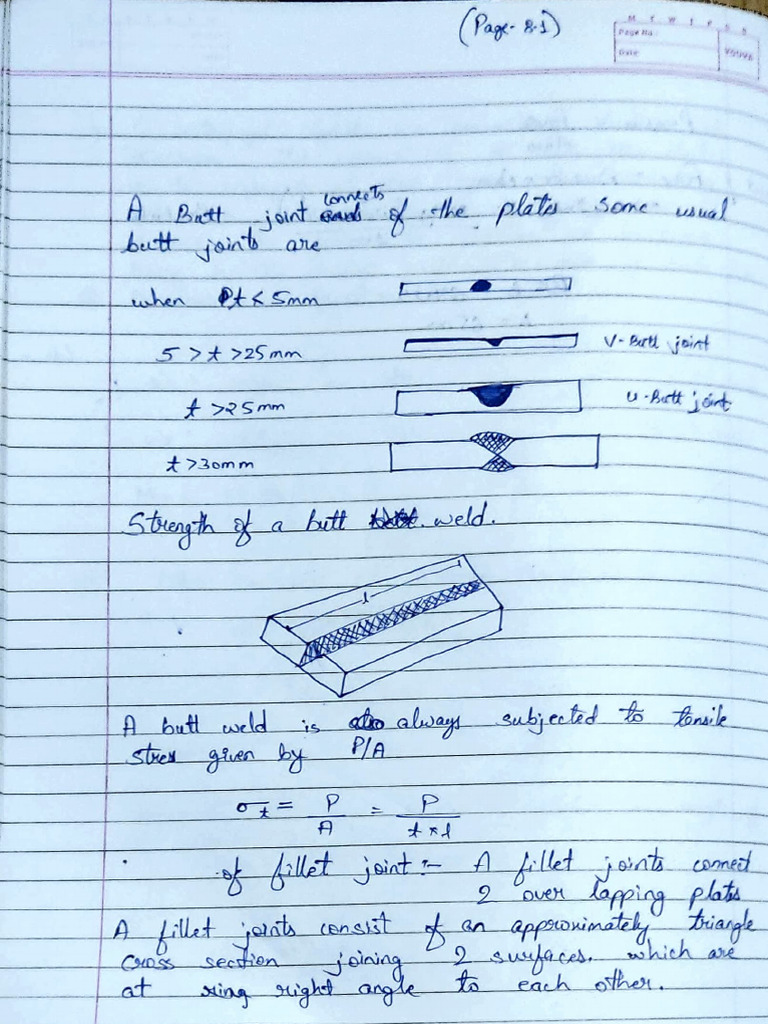 (Page-8.1)
M T W T F S S
Page No.:
Date:
YOUVA
A Butt joint connects of the plates some usual
butt joints are
when t < 5mm
5 > t > 25mm V-Butt joint
t > 25mm U-Butt joint
t > 30mm
Strength of a butt weld.
l
A butt weld is always subjected to tensile
stress given by P/A
σt = P/A = P/t*l
of fillet joint :- A fillet joints connect
2 over lapping plates
A fillet joints consist of an approximately triangle
cross section joining 2 surfaces. which are
at right angle to each other.